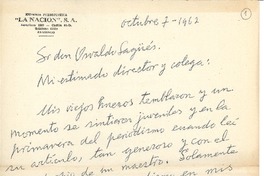 "LA NACION", S. A.
octubre 7-1962
Sr don Osvaldo Sagüés.
Mi estimado director y colega:
Mis viejos huesos temblaron y un
momento se sintieron juveniles y en la
primavera del periodismo cuando leí
su artículo, tan generoso y con el
de un maestro. Solamente
en mis